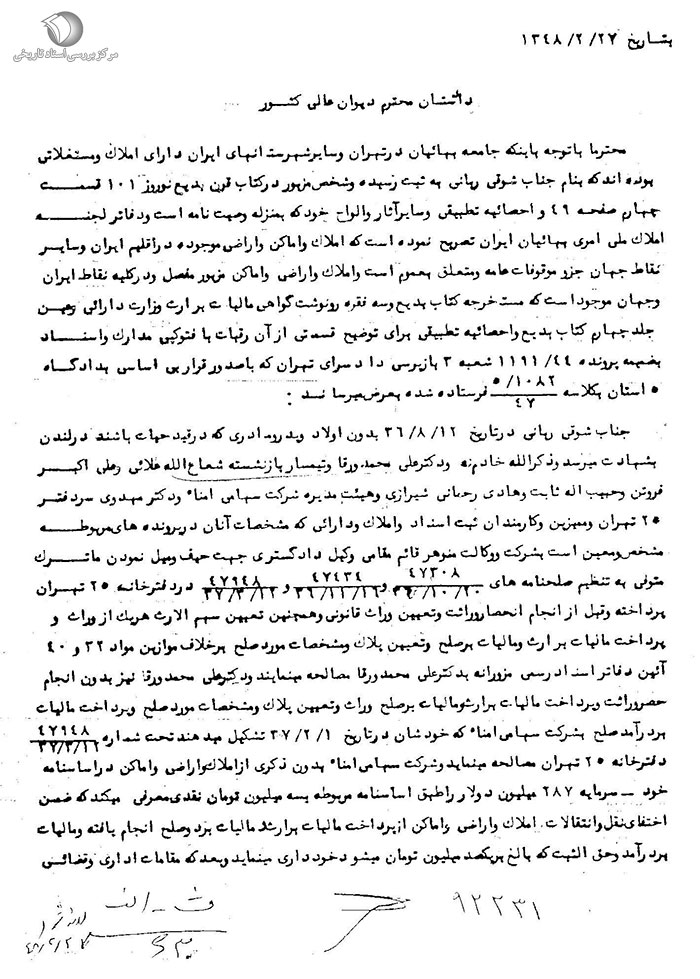 مرکز بررسی اسناد تاریخی
بتاریخ ۱۳۴۸/۲/۲۷
دادستان محترم دیوان عالی کشور
محترما باتوجه باینکه جامعه بهائیان درتهران وسایرشهرستانهای ایران دارای املاک ومستغلاتی
بوده اندکه بنام جناب شوقی ربانی به ثبت رسیده وشخص مزبور درکتاب قرن بدیع نوروز ۱۰۱ قسمت
چهارم صفحه ۴۹ و احصائیه تطبیقی وسایرآثار والواح خودکه بمنزله وصیت نامه است ودفاتر لجنه
املاک ملی امری بهائیان ایران تصریح نموده است که املاک واماکن واراضی موجوده دراقلیم ایران وسایر
نقاط جهان جزو موقوفات عامه ومتعلق بعموم است واملاک واراضی واماکن مزبور مفصل ودرکلیه نقاط ایران
وجهان موجود است که مستخرجه کتاب بدیع وسه فقره رونوشت گواهی مالیات برارث وزارت دارائی وعین
جلد چهارم کتاب بدیع واحصائیه تطبیقی برای توضیح قسمتی ازآن رقبات با فتوکپی مدارک واسناد
بضمیمه پرونده ۱۱۹۱/۴۴ شعبه ۳ بازپرسی دادسرای تهران که باصدور قرار بی اساسی بدادگاه
۵ استان بکلاسه ۵/۱۰۸۲ ۴۷ فرستاده شده بعرض میرساند :
جناب شوقی ربانی درتاریخ ۳۶/۸/۱۲ بدون اولاد وپدرومادری که درقید حیات باشند درلندن
بشهادت میرسد وذکرالله خادم ودکترعلی محمد ورقا وتیمسار بازنشسته شعاع الله علائی وعلی اکبر
فروتن وحبیب اله ثابت وهادی رحمانی شیرازی وهیئت مدیره شرکت سهامی امناء ودکتر مهدوی سردفتر
۲۵ تهران وممیزین وکارمندان ثبت اسناد واملاک ودارائی که مشخصات آنان درپرونده های مربوطه
مشخص ومعین است بشرکت ووکالت منوهر قائم مقامی وکیل دادگستری جهت حیف ومیل نمودن ماترک
متوفی به تنظیم صلحنامه های ۴۷۳۰۸ ۳۶/۱۰/۲۰ و ۴۷۴۳۴ ۳۶/۱۱/۱۶ و ۴۷۹۴۸ ۳۷/۳/۱۲ دردفترخانه ۲۵ تهران
پرداخته وقبل از انجام انحصاروراثت وتعیین وراث قانونی وهمچنین تعیین سهم الارث هریک ازوراث و
پرداخت مالیات برارث ومالیات برصلح وتعیین پلاک ومشخصات مورد صلح برخلاف موازین مواد ۳۲ و ۴۰
آئین دفاتر اسناد رسمی مزورانه بدکترعلی محمد ورقا مصالحه مینمایند ودکترعلی محمد ورقا نیز بدون انجام
حصروراثت وپرداخت مالیات برارث ومالیات برصلح وراث وتعیین پلاک ومشخصات مورد صلح وپرداخت مالیات
بردرآمد صلح بشرکت سهامی امناء که خودشان درتاریخ ۳۷/۲/۱ تشکیل میدهند تحت شماره ۴۷۹۴۸ ۳۷/۳/۱۶
دفترخانه ۲۵ تهران مصالحه مینماید وشرکت سهامی امناء بدون ذکری ازاملاک واراضی واماکن دراساسنامه
خود ــ سرمایه ۲۸۷ میلیون دولار راطبق اساسنامه مربوطه بسه میلیون تومان نقدی معرفی میکند که ضمن
اختفای نقل وانتقالات املاک واراضی واماکن ازپرداخت مالیات برارث و مالیات برد وصلح انجام یافته ومالیات
بردرآمد وحق الثبت که بالغ بریکصد میلیون تومان میشود خودداری مینماید وبعدکه مقامات اداری وقضائی
ث ـ الف
۹۲۲۳۱